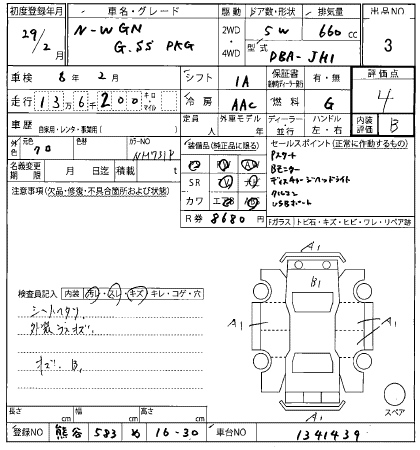 初度登録年月 車名・グレード 駆動 ドア数・形状 排気量 出品NO
29/2月 N-WGN G.SS PKG 2WD・4WD 5W 660cc 3
型式 DBA-JH1
車検 8年2月 シフト IA 保証書 有・無 評価点
4
走行 13万6千200 キロ・マイル 冷房 AAC 燃料 G
内装評価 B
車歴 自家用・レンタ・事業用( ) 定員 人 外車モデル 年 ディーラー・並行 ハンドル 左・右
外色 元色 クロ 色替 カラーNO NH731P
装備品(純正品に限る)
セールスポイント(正常に作動するもの)
名義変更期限 月 日迄 積載 t
SR
カワ エアB ABS
R券 8680円
Pスタート
Bモニター
ディスチャージヘッドライト
USBポート
注意事項(欠品・修復・不具合箇所および状態)
Fガラス トビ石・キズ・ヒビ・ワレ・リペア跡
A1
B1
A1
A1
A1
検査員記入 内装 汚レ・スレ・キズ・キレ・コゲ・穴
シートヘタリ
外装 コスキズ
キズ B1
スペア
長さ cm 幅 cm 高さ cm
登録NO 熊谷 583 め 16-30 車台NO 1341439